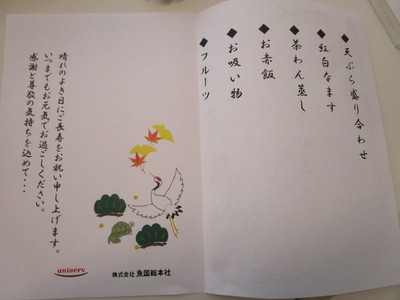 ◆天ぷら盛り合わせ
◆紅白なます
◆茶わん蒸し
◆お赤飯
◆お吸い物
◆フルーツ
晴れのよき日にご長寿をお祝い申し上げます。
いつまでもお元気でお過ごしください。
感謝と尊敬の気持ちを込めて・・・
uniserv
株式会社 魚国総本社